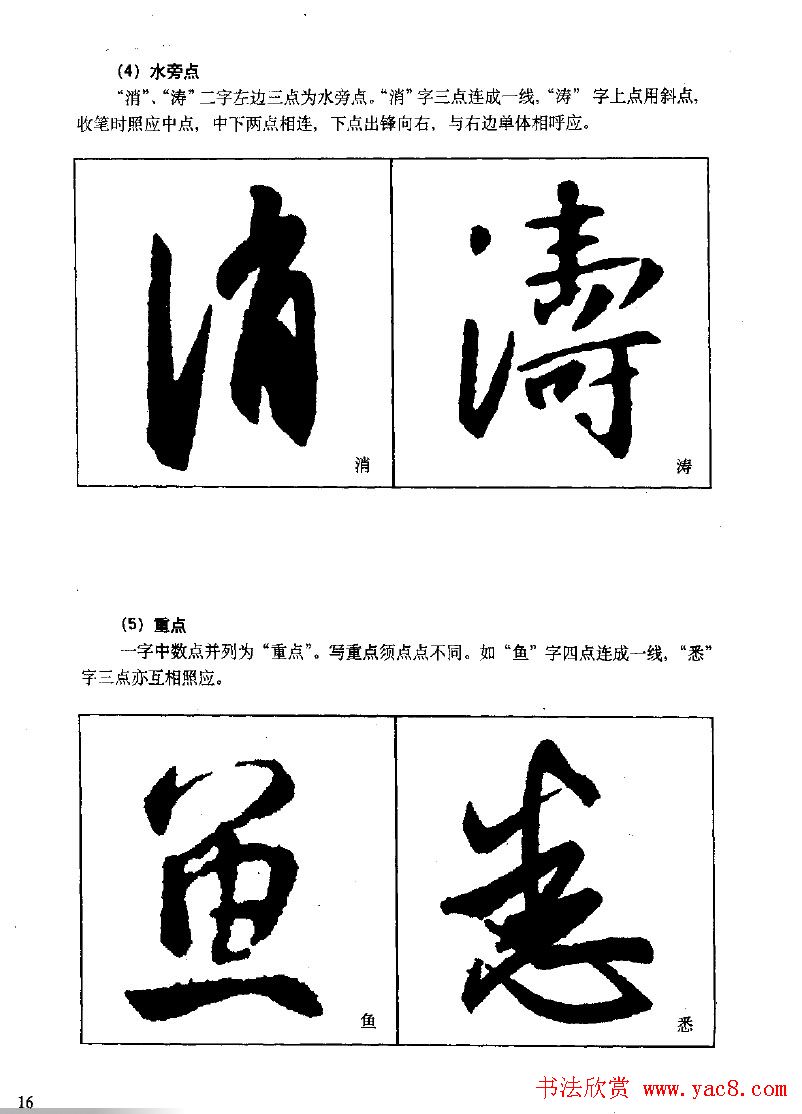 （4）水旁点
“消”、“涛”二字左边三点为水旁点。“消”字三点连成一线，“涛” 字上点用斜点，
收笔时照应中点，中下两点相连，下点出锋向右，与右边单体相呼应。
消 濤
消 涛
（5）重点
一字中数点并列为“重点”。写重点须点点不同。如“鱼”字四点连成一线，“悉”
字三点亦互相照应。
鱼 悉
鱼 悉
书法欣赏 www.yac8.com
16